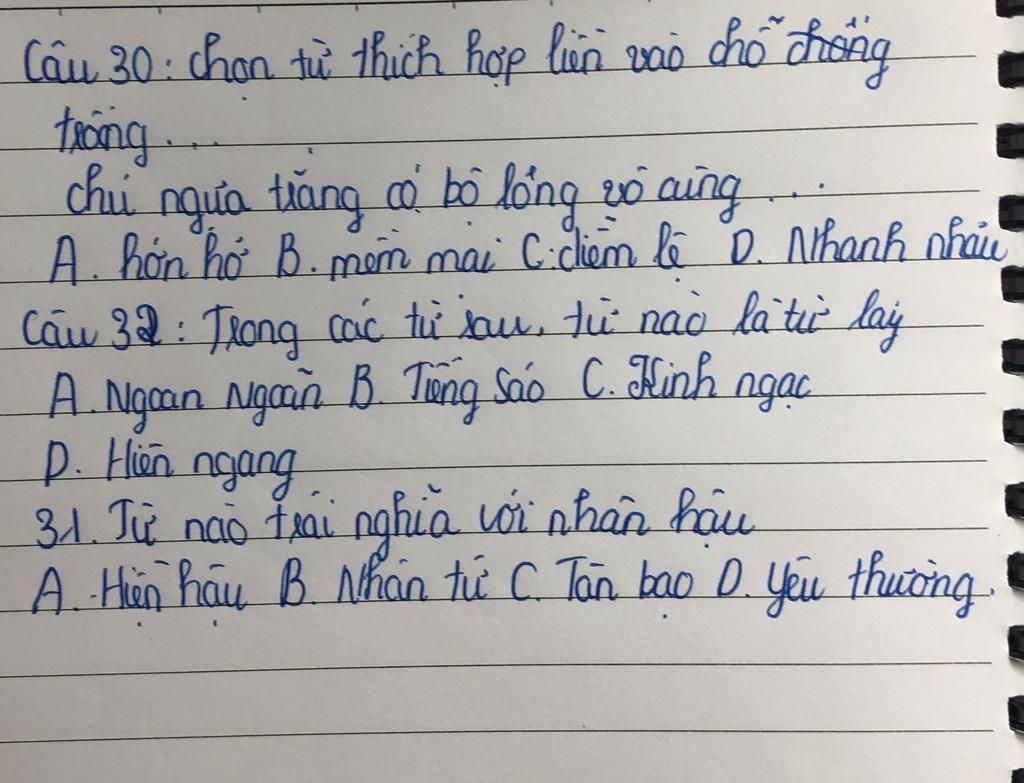 Câu 30: Chọn từ thích hợp liền vào chỗ chống
trống...
Chú ngựa trắng có bộ lông vô cùng ...
A. hớn hở B. mềm mại C. diễm lệ D. Nhanh nhảu
Câu 32: Trong các từ sau, từ nào là từ láy
A. Ngoan Ngoãn B. Tiếng Sáo C. Kinh ngạc
D. Hiên ngang
31. Từ nào trái nghĩa với nhân hậu
A. Hiền hậu B. Nhân từ C. Tàn bạo D. Yêu thương.